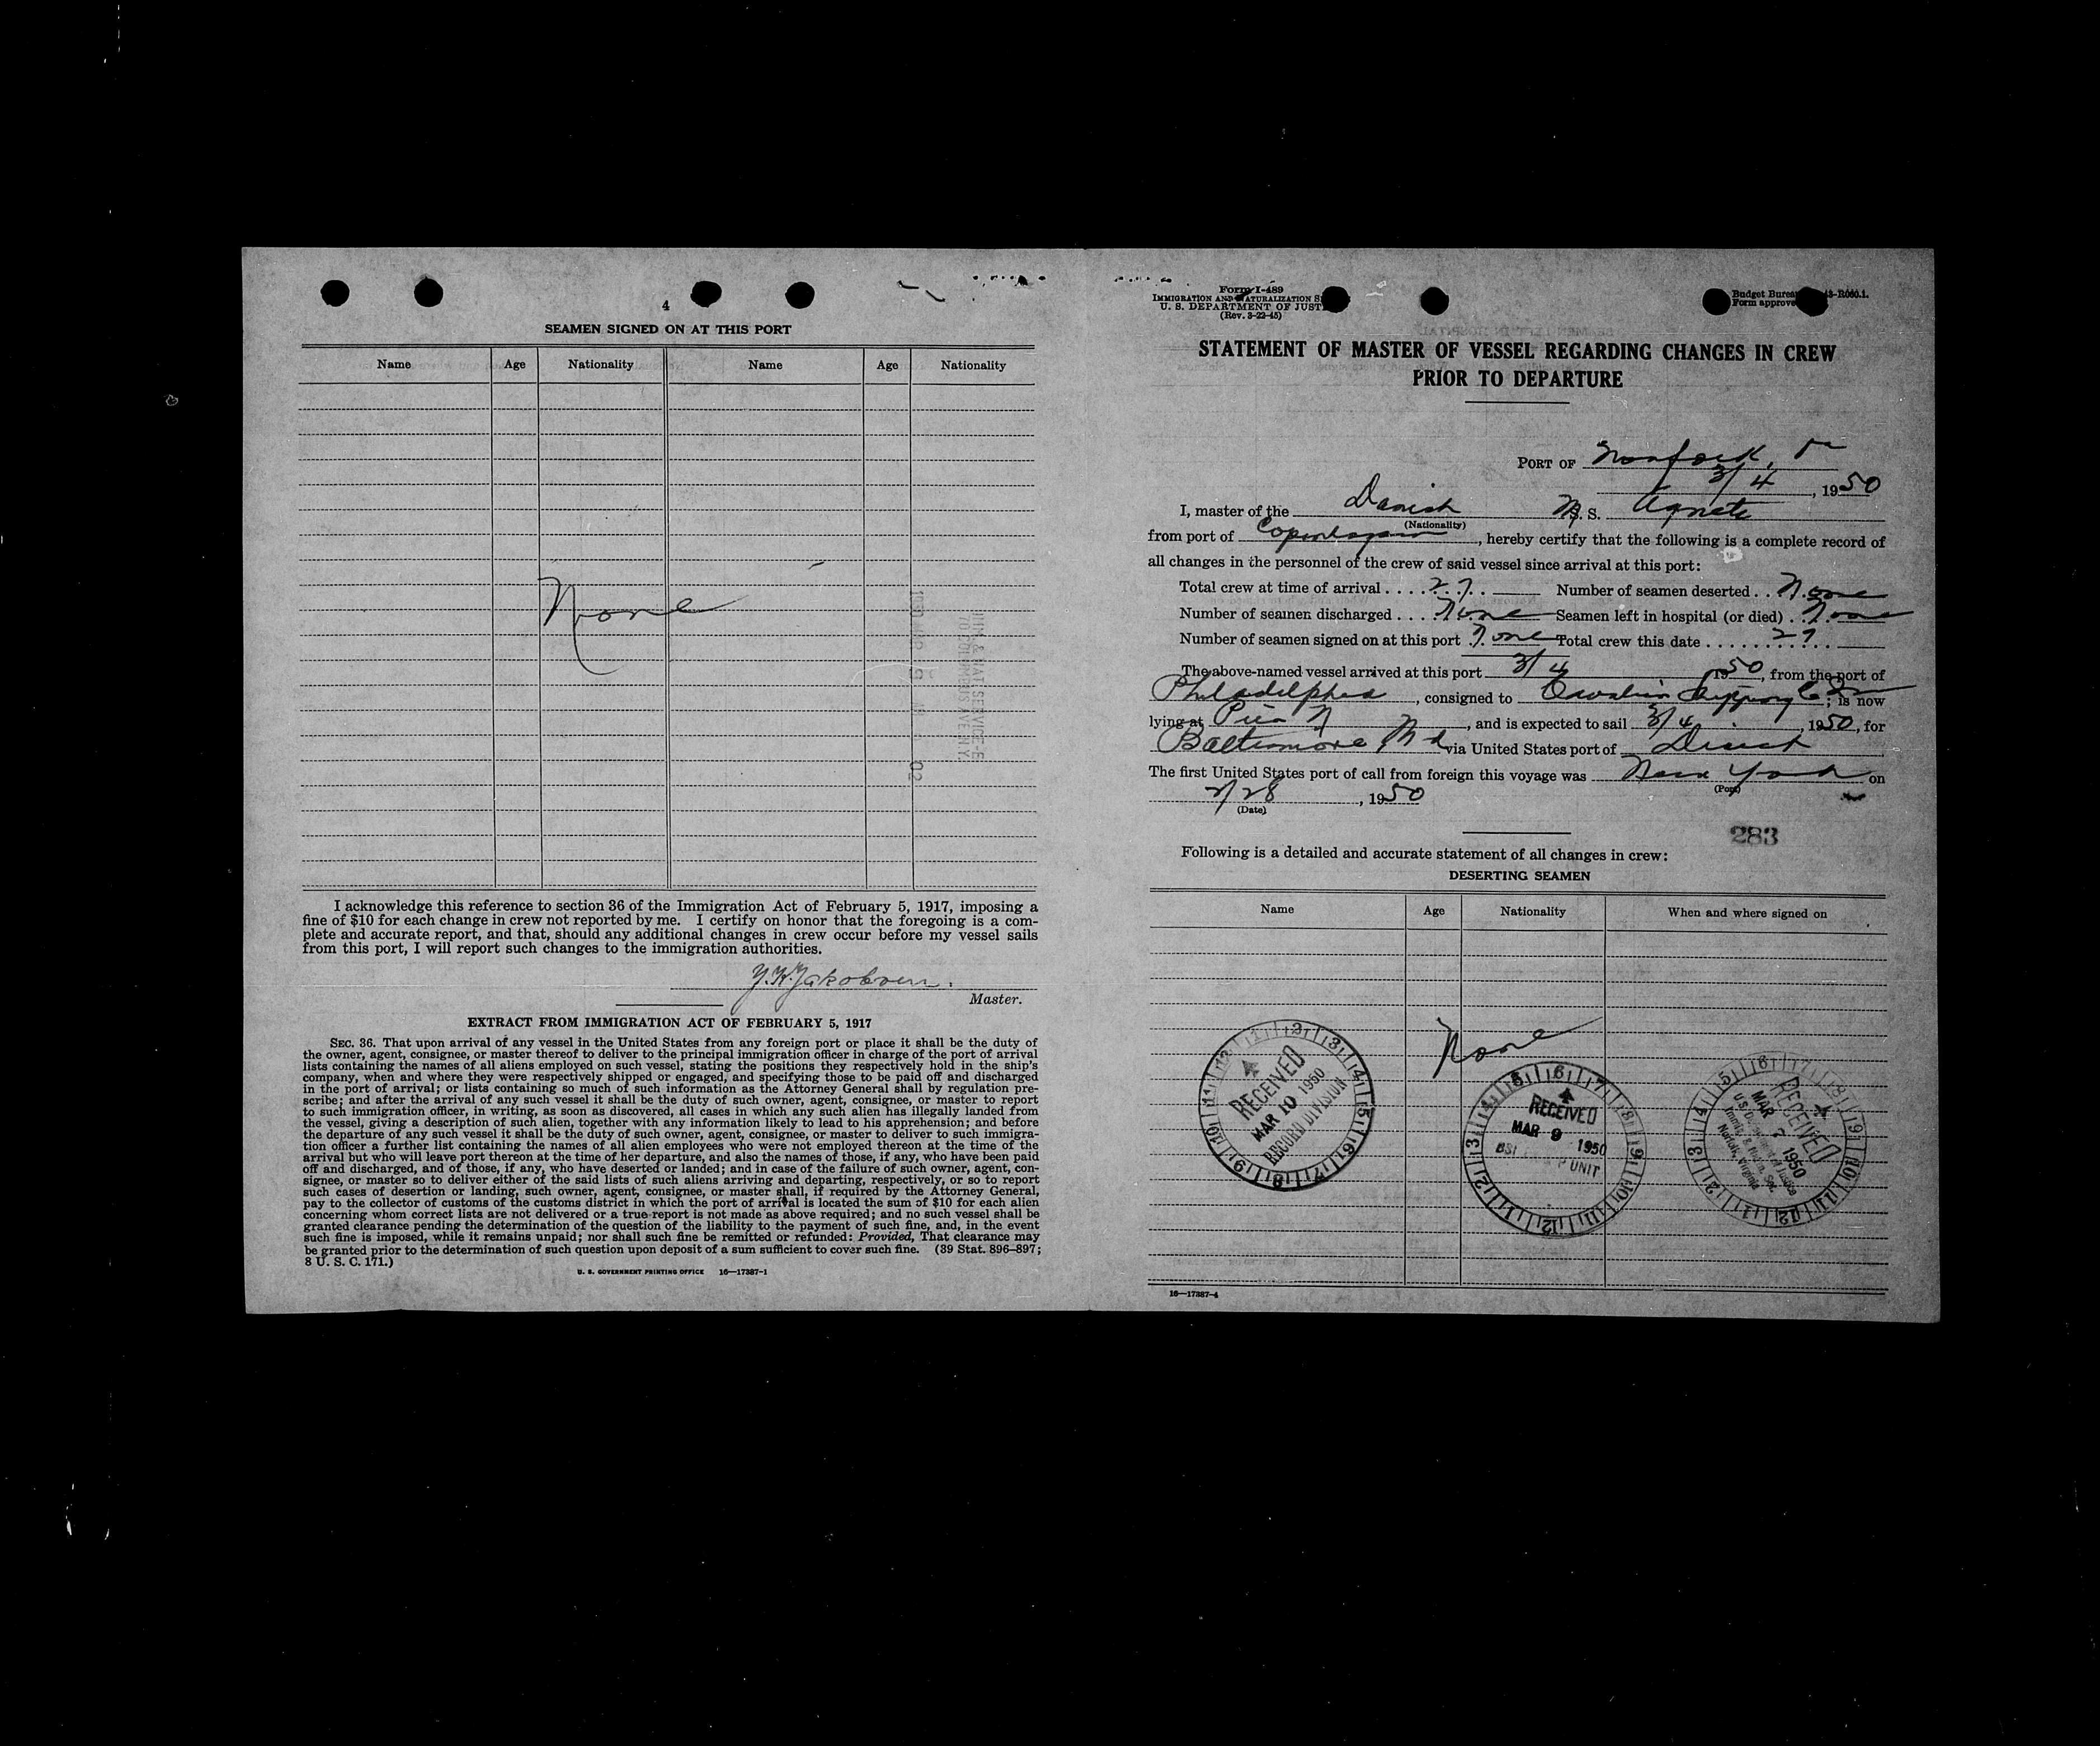 4
SEAMEN SIGNED ON AT THIS PORT
Name Age Nationality Name Age Nationality
None
I acknowledge this reference to section 36 of the Immigration Act of February 5, 1917, imposing a
fine of $10 for each change in crew not reported by me. I certify on honor that the foregoing is a com-
plete and accurate report, and that, should any additional changes in crew occur before my vessel sails
from this port, I will report such changes to the immigration authorities.
Master.
EXTRACT FROM IMMIGRATION ACT OF FEBRUARY 5, 1917
SEC. 36. That upon arrival of any vessel in the United States from any foreign port or place it shall be the duty of
the owner, agent, consignee, or master thereof to deliver to the principal immigration officer in charge of the port of arrival
lists containing the names of all aliens employed on such vessel, stating the positions they respectively hold in the ship's
company, when and where they were respectively shipped or engaged, and specifying those to be paid off and discharged
in the port of arrival; or lists containing so much of such information as the Attorney General shall by regulation pre-
scribe; and after the arrival of any such vessel it shall be the duty of such owner, agent, consignee, or master to report
to such immigration officer, in writing, as soon as discovered, all cases in which any such alien has illegally landed from
the vessel, giving a description of such alien, together with any information likely to lead to his apprehension; and before
the departure of any such vessel it shall be the duty of such owner, agent, consignee, or master to deliver to such immigra-
tion officer a further list containing the names of all alien employees who were not employed thereon at the time of the
arrival but who will leave port thereon at the time of her departure, and also the names of those, if any, who have been paid
off and discharged, and of those, if any, who have deserted or landed; and in case of the failure of such owner, agent, con-
signee, or master so to deliver either of the said lists of such aliens arriving and departing, respectively, or so to report
such cases of desertion or landing, such owner, agent, consignee, or master shall, if required by the Attorney General,
pay to the collector of customs of the customs district in which the port of arrival is located the sum of $10 for each alien
concerning whom correct lists are not delivered or a true report is not made as above required; and no such vessel shall be
granted clearance pending the determination of the question of the liability to the payment of such fine, and, in the event
such fine is imposed, while it remains unpaid; nor shall such fine be remitted or refunded: Provided, That clearance may
be granted prior to the determination of such question upon deposit of a sum sufficient to cover such fine. (39 Stat. 896–897;
8 U. S. C. 171.)
U. S. GOVERNMENT PRINTING OFFICE 16—17387-1
Form I-489
IMMIGRATION AND NATURALIZATION S
U. S. DEPARTMENT OF JUST
(Rev. 3-22-45)
Budget Burea 43-R060.1.
Form approve
STATEMENT OF MASTER OF VESSEL REGARDING CHANGES IN CREW
PRIOR TO DEPARTURE
PORT OF Norfolk, Va
3/4, 1950
I, master of the Danish M. S. Agnete
(Nationality)
from port of Copenhagen, hereby certify that the following is a complete record of
all changes in the personnel of the crew of said vessel since arrival at this port:
Total crew at time of arrival . . . . 27. Number of seamen deserted . . None
Number of seamen discharged . . . . None Seamen left in hospital (or died) . None
Number of seamen signed on at this port . None Total crew this date . . . . . 27
The above-named vessel arrived at this port 3/4 1950, from the port of
Philadelphia, consigned to Shipping Co ; is now
lying at Pier N, and is expected to sail 3/4, 1950, for
Baltimore Md via United States port of Direct
The first United States port of call from foreign this voyage was New York on
(Port)
2/28, 1950
(Date)
283
Following is a detailed and accurate statement of all changes in crew:
DESERTING SEAMEN
Name Age Nationality When and where signed on
None
RECEIVED
MAR 10 1950
RECORD DIVISION
RECEIVED
MAR 9 1950
UNIT
RECEIVED
MAR 7 1950
Norfolk, Virginia
16—17387-4